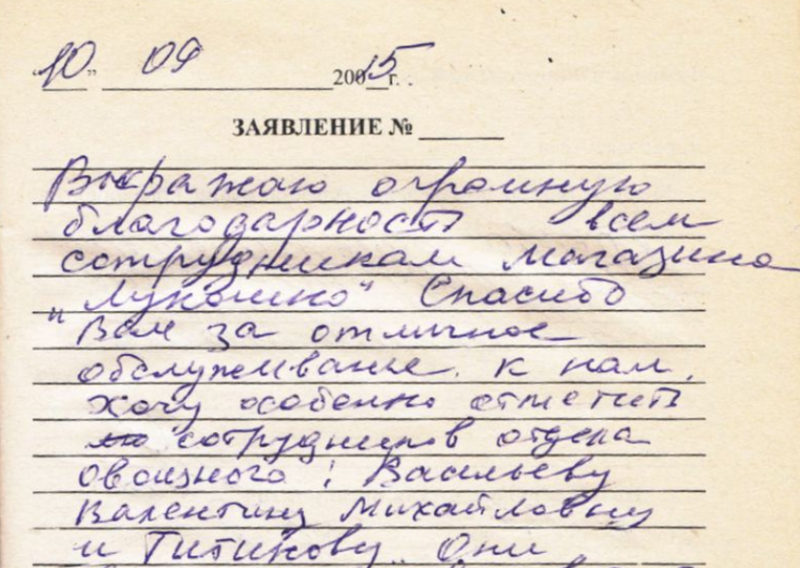 "10" 09 2005 15 г.
ЗАЯВЛЕНИЕ № ____
Выражаю огромную
благодарность всем
сотрудникам магазина
"Лукошко" Спасибо
Вам за отличное
обслуживание к нам.
Хочу особенно отметить
сотрудников отдела
овощного: Васильеву
Валентину Михайловну
и Титикову. Они